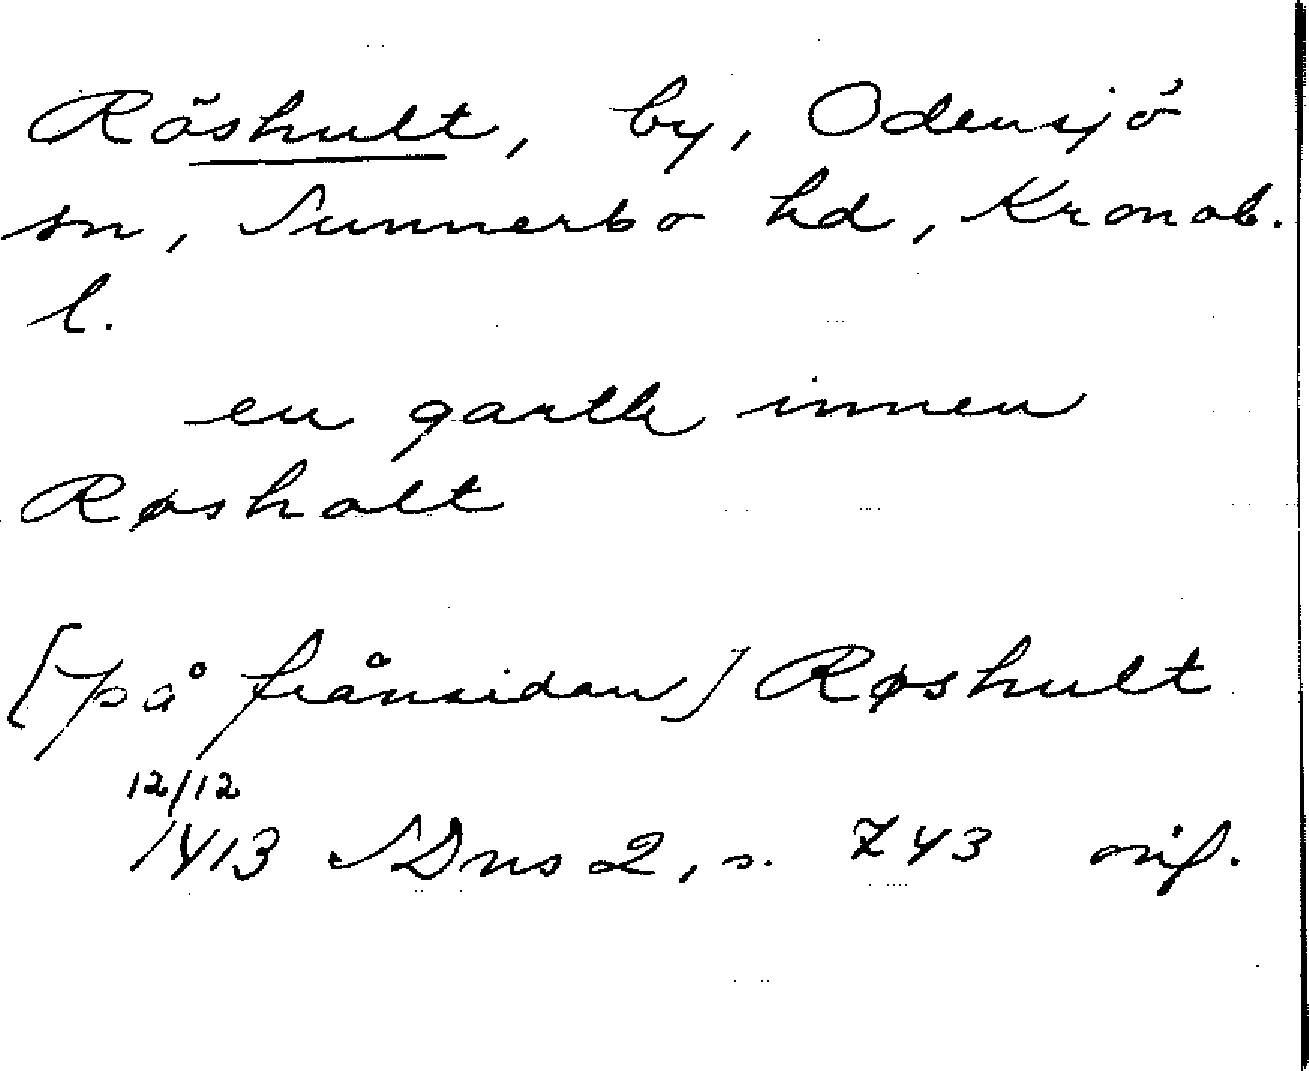 Röshult, by, Odensjö
sn, Sunnerbo hd, Kronob.
l.
en garth innen
Røsholt
[på frånsidan] Røshult
12/12
1413 SDns 2, s. 743 orig.